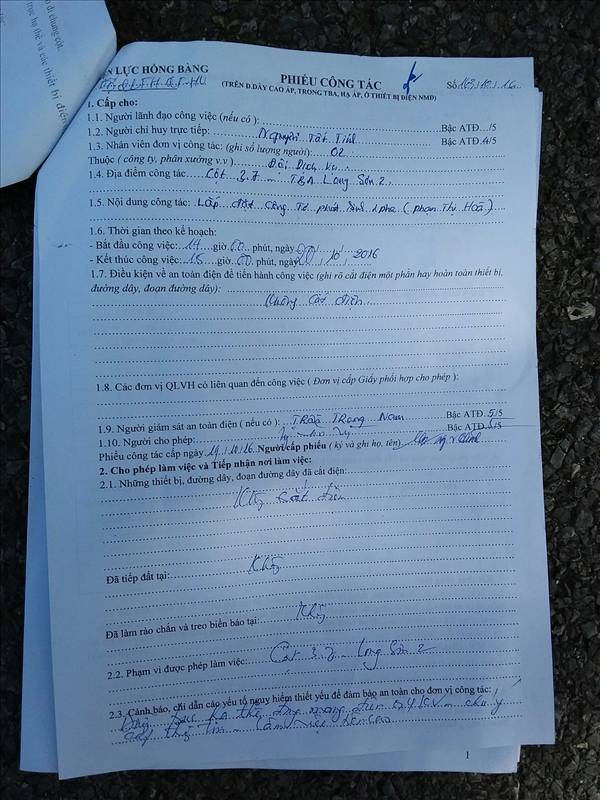 ỆN LỰC HỒNG BÀNG
PHIẾU CÔNG TÁC
(TRÊN Đ.DÂY CAO ÁP, TRONG TBA, HẠ ÁP, Ở THIẾT BỊ ĐIỆN NMĐ)
Số 163/10/16
1. Cấp cho:
1.1. Người lãnh đạo công việc (nếu có): Bậc ATĐ.../5
1.2. Người chỉ huy trực tiếp: Nguyễn Tất Tỉnh Bậc ATĐ.4/5
1.3. Nhân viên đơn vị công tác: (ghi số lượng người): 02
Thuộc ( công ty, phân xưởng v.v ) Đội Dịch vụ
1.4. Địa điểm công tác Cột 3.7 TBA Long Sơn 2
1.5. Nội dung công tác: Lắp đặt công tơ phát sinh 1 pha ( Phạm Thị Hoà )
1.6. Thời gian theo kế hoạch:
- Bắt đầu công việc: 14 giờ 00 phút, ngày
- Kết thúc công việc: 15 giờ 00 phút, ngày / 10 / 2016
1.7. Điều kiện về an toàn điện để tiến hành công việc (ghi rõ cắt điện một phần hay hoàn toàn thiết bị,
đường dây, đoạn đường dây):
Không cắt điện
1.8. Các đơn vị QLVH có liên quan đến công việc ( Đơn vị cấp Giấy phối hợp cho phép ):
1.9. Người giám sát an toàn điện ( nếu có ): Trần Trọng Nam Bậc ATĐ.5/5
1.10. Người cho phép: Bậc ATĐ /5
Phiếu công tác cấp ngày 19/10/16 Người cấp phiếu ( ký và ghi họ, tên)
2. Cho phép làm việc và Tiếp nhận nơi làm việc:
2.1. Những thiết bị, đường dây, đoạn đường dây đã cắt điện:
Không cắt điện
Đã tiếp đất tại: Không
Đã làm rào chắn và treo biển báo tại: Không
2.2. Phạm vi được phép làm việc: Cột 3.7 Long Sơn 2
2.3. Cảnh báo, chỉ dẫn các yếu tố nguy hiểm thiết yếu để đảm bảo an toàn cho đơn vị công tác:
Đường dây hạ thế đang mang điện 0,4 KV - chú ý
làm việc trên cao
1